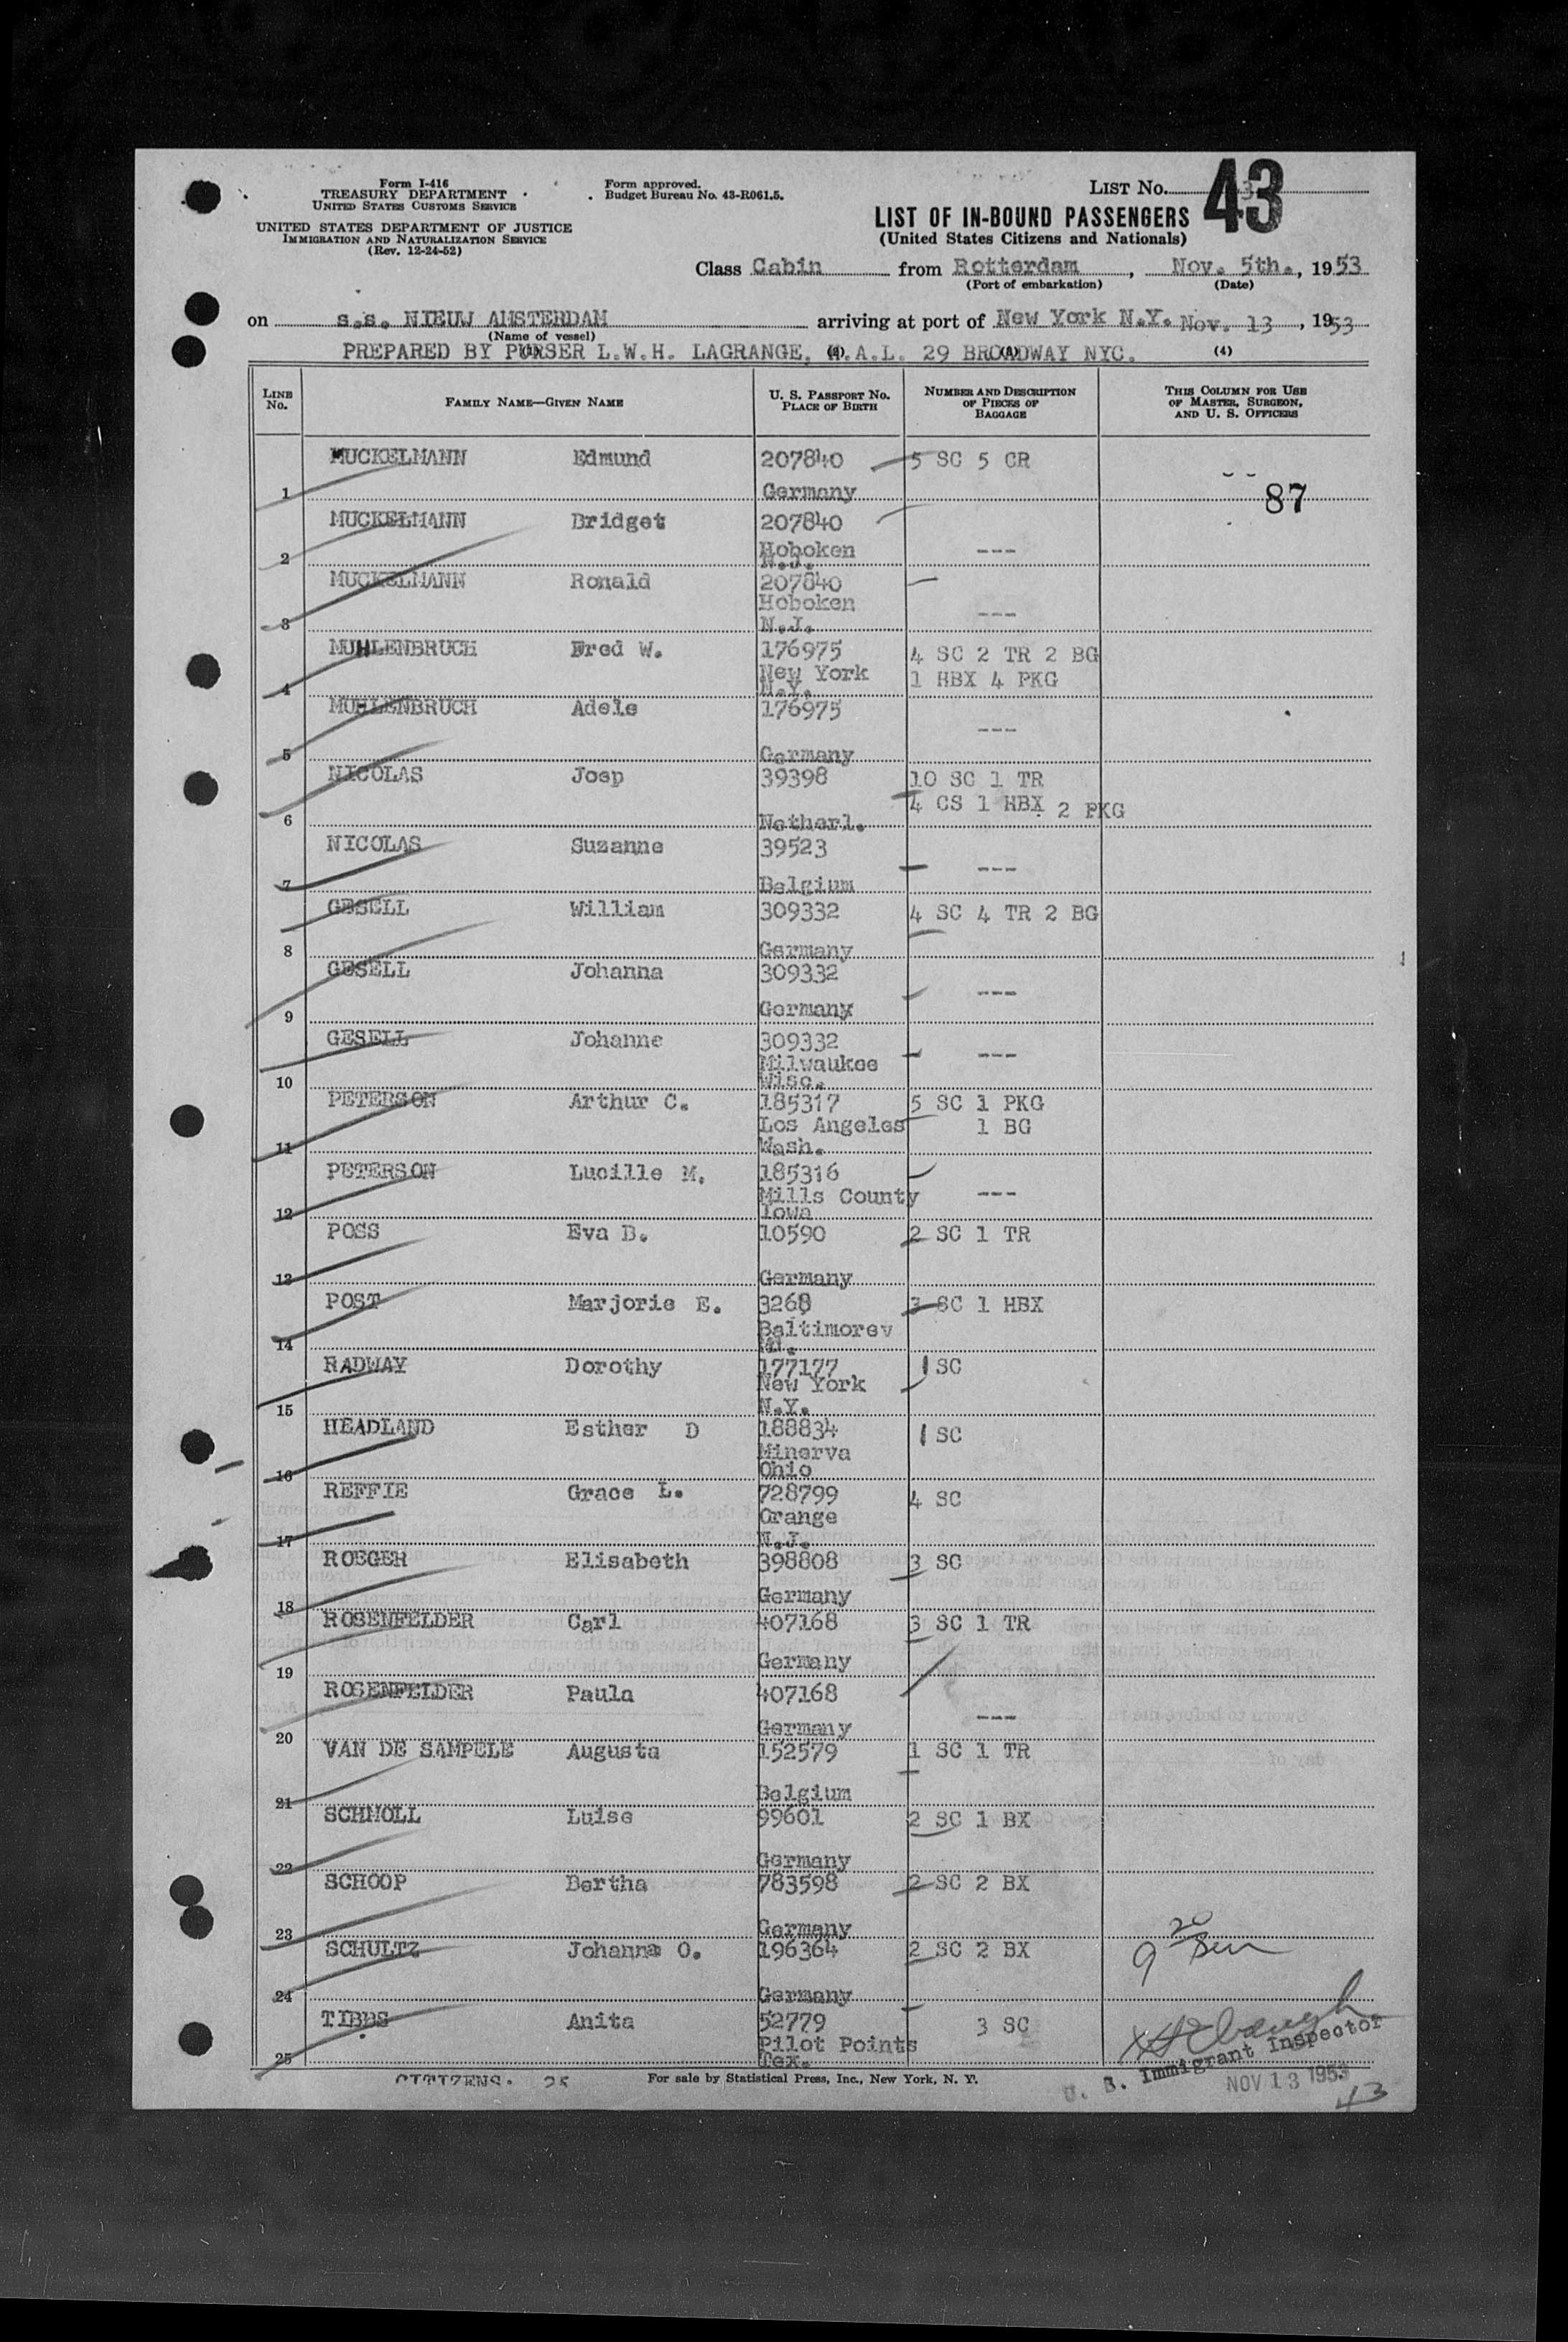 Form I-416
TREASURY DEPARTMENT
UNITED STATES CUSTOMS SERVICE
UNITED STATES DEPARTMENT OF JUSTICE
IMMIGRATION AND NATURALIZATION SERVICE
(Rev. 12-24-52)
Form approved.
Budget Bureau No. 43-R061.5.
LIST No. 43
LIST OF IN-BOUND PASSENGERS
(United States Citizens and Nationals)
Class Cabin from Rotterdam, Nov. 5th., 1953
(Port of embarkation) (Date)
on s.s. NIEUW AMSTERDAM arriving at port of New York N.Y. Nov. 13, 1953
(Name of vessel)
PREPARED BY PURSER L.W.H. LAGRANGE, H.A.L. 29 BROADWAY NYC. (4)
LINE No. FAMILY NAME—GIVEN NAME U. S. PASSPORT No. PLACE OF BIRTH NUMBER AND DESCRIPTION OF PIECES OF BAGGAGE THIS COLUMN FOR USE OF MASTER, SURGEON, AND U. S. OFFICERS
MUCKELMANN Edmund 207840 5 SC 5 CR
1 Germany 87
MUCKELMANN Bridget 207840
2 Hoboken N.J. ---
MUCKELMANN Ronald 207840
Hoboken ---
3 N.J.
MUHLENBRUCH Fred W. 176975 4 SC 2 TR 2 BG
New York 1 HBX 4 PKG
4 N.Y.
MUHLENBRUCH Adele 176975 ---
5 Germany
NICOLAS Josp 39398 10 SC 1 TR
4 CS 1 HBX 2 PKG
6 Netherl.
NICOLAS Suzanne 39523 ---
7 Belgium
GESELL William 309332 4 SC 4 TR 2 BG
8 Germany
GESELL Johanna 309332 ---
9 Germany
GESELL Johanne 309332 ---
Milwaukee
10 Wisc.
PETERSON Arthur C. 185317 5 SC 1 PKG
Los Angeles 1 BG
11 Wash.
PETERSON Lucille M. 185316
Mills County ---
12 Iowa
POSS Eva B. 10590 2 SC 1 TR
13 Germany
POST Marjorie E. 3268 3 SC 1 HBX
Baltimorev
14 Md.
RADWAY Dorothy 177177 1 SC
New York
15 N.Y.
HEADLAND Esther D 188834 1 SC
Minerva
16 Ohio
REFFIE Grace L. 728799 4 SC
Orange
17 N.J.
ROEGER Elisabeth 398808 3 SC
18 Germany
ROSENFELDER Carl 407168 3 SC 1 TR
19 Germany
ROSENFELDER Paula 407168 ---
20 Germany
VAN DE SAMPELE Augusta 152579 1 SC 1 TR
21 Belgium
SCHMOLL Luise 99601 2 SC 1 BX
22 Germany
SCHOOP Bertha 783598 2 SC 2 BX
23 Germany
SCHULTZ Johanna O. 196364 2 SC 2 BX
24 Germany
TIBBS Anita 52779 3 SC
Pilot Points
25 Tex.
CITIZENS: 25
For sale by Statistical Press, Inc., New York, N. Y.
U. S. Immigrant Inspector
NOV 13 1953
43